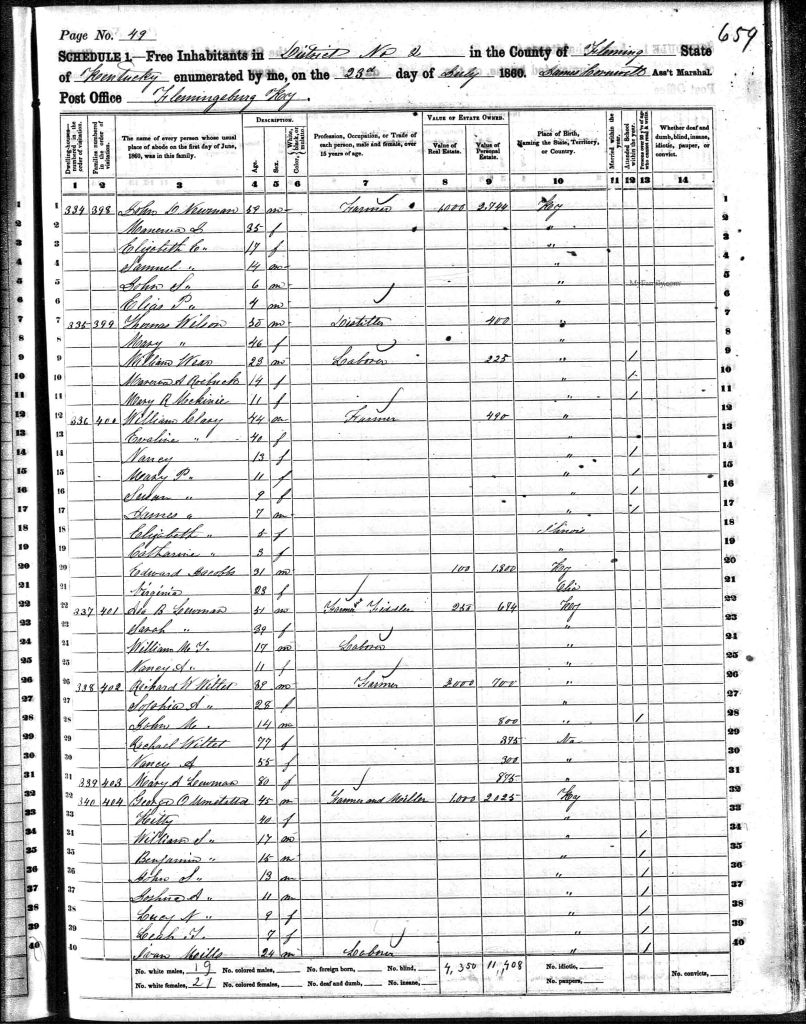 659
Page No. 49
SCHEDULE 1.—Free Inhabitants in District No 2 in the County of Fleming State
of Kentucky enumerated by me, on the 23d day of July 1860. Ass't Marshal.
Post Office Flemingsburg Ky.
Dwelling-houses—numbered in the order of visitation.
Families numbered in the order of visitation.
The name of every person whose usual place of abode on the first day of June, 1860, was in this family.
DESCRIPTION.
Age.
Sex.
Color, White, black, or mulatto.
Profession, Occupation, or Trade of each person, male and female, over 15 years of age.
VALUE OF ESTATE OWNED.
Value of Real Estate.
Value of Personal Estate.
Place of Birth, Naming the State, Territory, or Country.
Married within the year.
Attended School within the year.
Persons over 20 y'rs of age who cannot read & write.
Whether deaf and dumb, blind, insane, idiotic, pauper, or convict.
1 2 3 4 5 6 7 8 9 10 11 12 13 14
1 334 398 John D Newman 59 m Farmer Ky 1
2 Manerva 35 f " 2
3 Elizabeth C " 17 f " 3
4 Samuel " 14 m " 4
5 John S " 6 m " 5
6 Elias P " 4 m " 6
7 335 399 Thomas Wilson 50 m Distiller 400 " 7
8 Mary " 46 f " 8
9 William Wear 23 m Laborer 225 " 1 9
10 A Roebuck 14 f " 1 10
11 Mary R McKinie 11 f " 1 11
12 336 400 William Clary 44 m Farmer 490 " 12
13 Evaline " 40 f " 13
14 Nancy 13 f " 1 14
15 Mary P " 11 f " 1 15
16 Susan " 9 f " 1 16
17 James " 7 m " 1 17
18 Elizabeth " 5 f Illinois 18
19 Catharine " 3 f " 19
20 Edward Jacobs 31 m 100 1,800 Ky 20
21 Virginia 23 f 21
22 337 401 B Lewman 51 m Farmer & Fiddler 250 694 Ky 22
23 Sarah " 39 f " 23
24 William M T " 17 m Laborer " 24
25 Nancy A " 11 f " 25
26 338 402 Richard W Willet 39 m Farmer 3000 700 " 26
27 Sophia A " 28 f " 27
28 John M 14 m 800 " 1 28
29 Rachael Willet 77 f 375 29
30 Nancy A 55 f 300 " 30
31 339 403 Mary A Lewman 80 f 875 " 31
32 340 404 George O Umstattd 45 m Farmer and Miller 1,000 2025 Ky 32
33 Kitty 40 f " 33
34 William S " 17 m " 1 34
35 Benjamin " 15 m " 1 35
36 John S " 13 m " 1 36
37 Joshua A " 11 m " 1 37
38 Lucy N " 9 f " 1 38
39 Leah T 7 f " 1 39
40 Mills 24 m Laborer " 1 40
No. white males, 19 No. colored males, No. foreign born, No. blind, 4,350 11,408 No. idiotic, No. convicts,
No. white females, 21 No. colored females, No. deaf and dumb, No. insane, No. paupers,